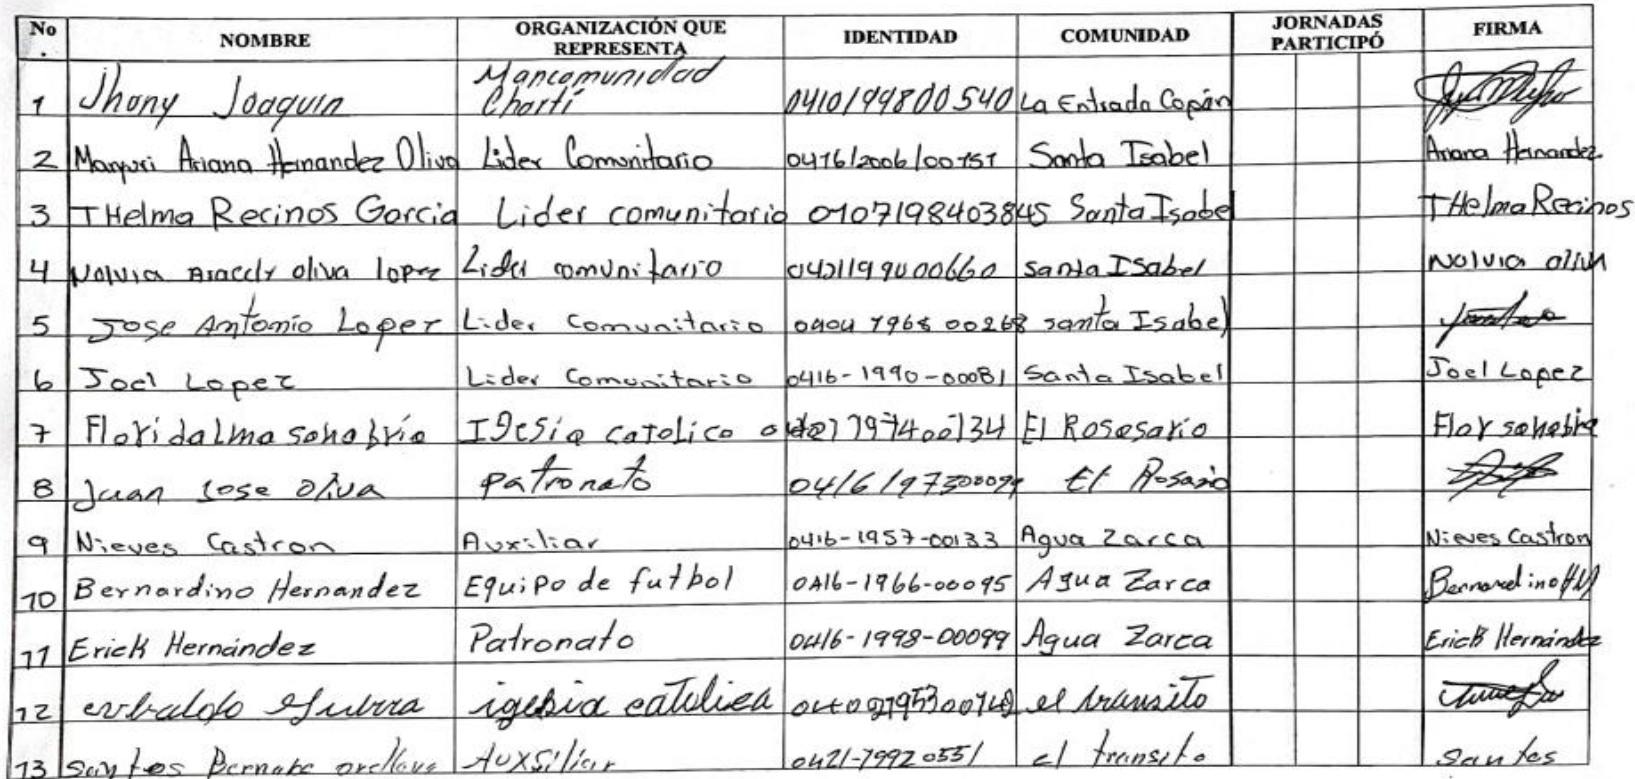 No. NOMBRE ORGANIZACIÓN QUE REPRESENTA IDENTIDAD COMUNIDAD JORNADAS PARTICIPÓ FIRMA
1 Jhony Joaquin Mancomunidad Chortí 0410199800540 La Entrada Copán
2 Hernandez Oliva Lider Comunitario 0416/2006/00151 Santa Isabel Ariana Hernandez
3 THelma Recinos Garcia Lider comunitario 0107198403845 Santa Isabel THelma Recinos
4 Nolvia Aracely oliva lopez Lider comunitario 0421199000660 santa Isabel Nolvia oliva
5 Jose Antonio Lopez Lider Comunitario 0404 1968 00268 santa Isabel
6 Joel Lopez Lider Comunitario 0416-1990-00081 Santa Isabel Joel Lopez
7 Floridalma sanabria Iglesia catolico El Rosesario Flor sanabria
8 Juan Jose Oliva patronato El Rosario
9 Nieves Castron Auxiliar 0416-1957-00133 Agua Zarca Nieves Castron
10 Bernardino Hernandez Equipo de futbol 0416-1966-00095 Agua Zarca Bernardino
11 Erick Hernández Patronato 0416-1998-00099 Agua Zarca Erick Hernández
12 igesia catolica el transito
13 Santos Bernabe orellana Auxsiliar 0421-1992 0551 el transito Santos